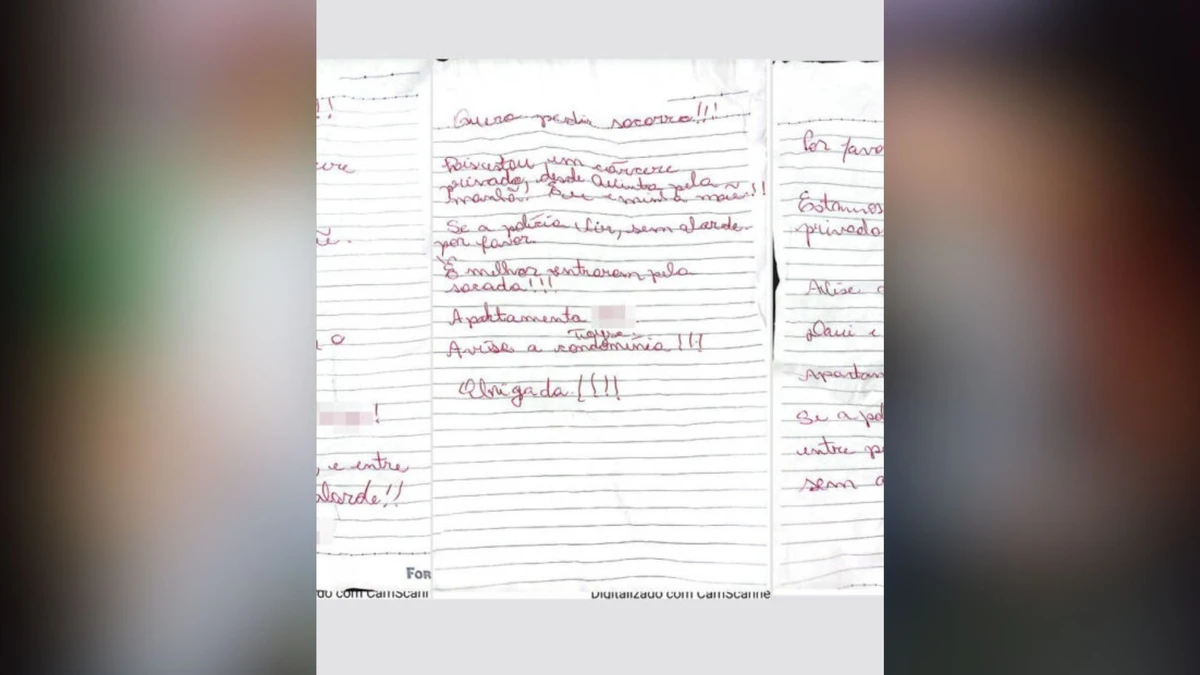 !!
cere
ãe.
o
!
, e entre
alarde!!
For
do com CamScann
Quero pedir socorro!!!
Pois estou em cárcere
privado, desde Quinta pela
manhã. Eu e minha mãe!!!
Se a polícia vir, sem alarde
por favor
É melhor entrarem pela
sacada!!!
Apartamento
Toque
Avise a condomínia!!!
Obrigada!!!!
Digitalizado com CamScanne
Por favo
Estamos
privado
Avise a
Daui e
Apartam
Se a po
entre p
sem a